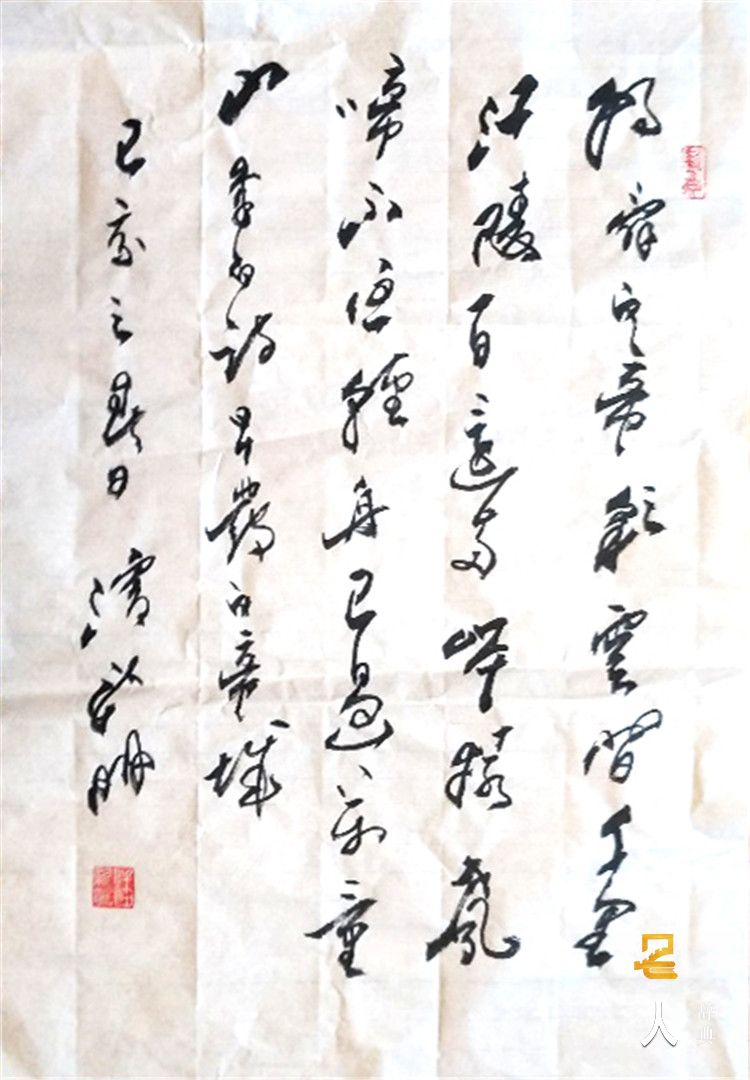 朝辭白帝彩雲間千里
江陵一日還兩岸猿聲
啼不住輕舟已過萬重
山李白詩早發白帝城
己亥之春日
人
辞典